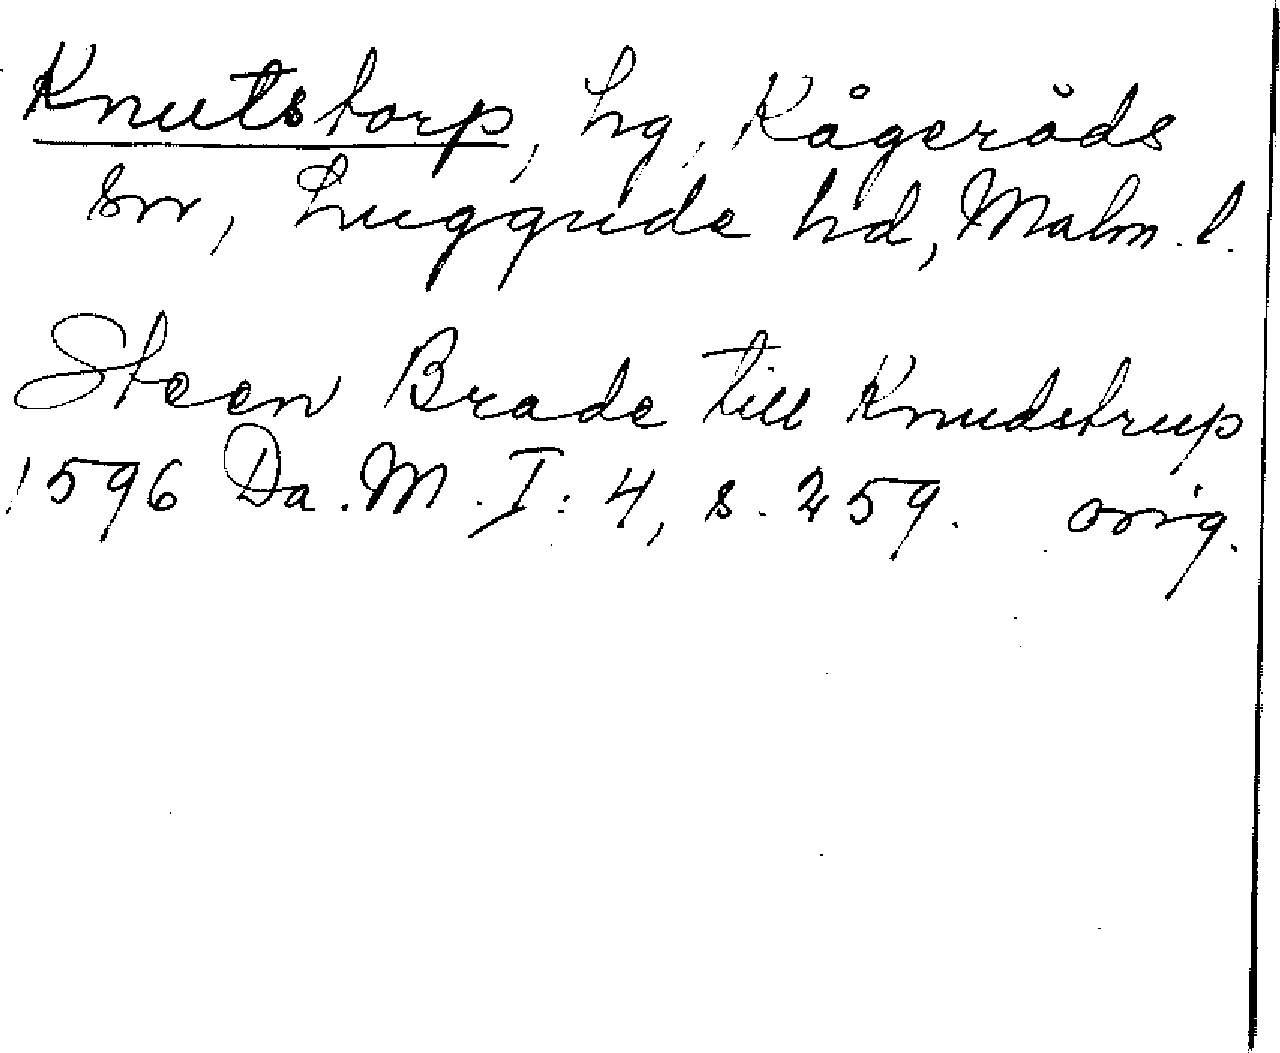 Knutstorp, hg, Kågeröds
sn, Luggude hd, Malm. l.
Steen Brade till Knudstrup
1596 Da. M. I: 4, s. 259. orig.